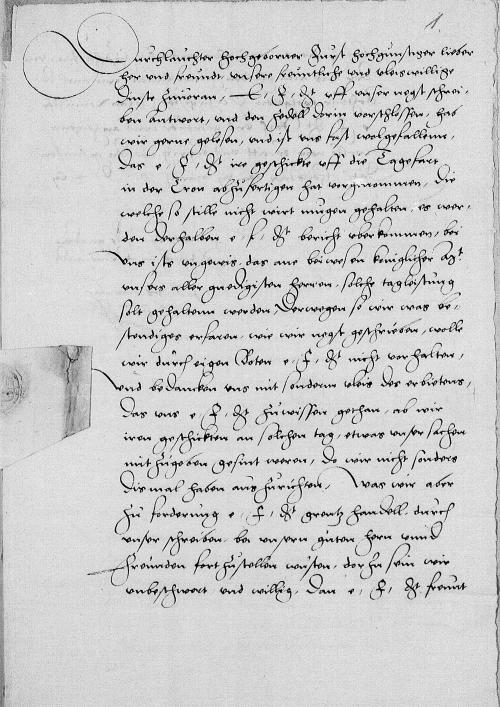 1.
Durchlauchter Hochgeborner Furst hochgunstiger lieber
her und freundt unsere freuntliche und vleiswillige
dinste zuvoran, E, F, G, uff unser negst schrei-
ben antwort, und den Zedell dorin vorschlossen, hab
wir gerne gelesen, und ist uns fast wolgefallenn,
das e, F, G, ire geschickte uff die Tagefart
in der Cron abzufertigen hat vorgenommen, Die
welche so stille nicht wirt mugen gehalten, es wer-
den derhalben e, F, G, bericht uberkommen, bei
uns ists ungewis, das ane beiwesen koniglicher
unsers aller gnedigisten herren, solche tagleistung
solt gehaltenn werden, Derwegen so wir was be-
stendiges erfaren, wie wir negst geschrieben, wolle
wir durch eigen Boten e, F, G, nicht vorhalten,
und bedancken uns mit sonderm vleis des erbietens,
das uns e, F, G, zuwissen gethan, ab wir
iren geschickten an solchen tag, etwas unser sachen
mitzugeben gesint weren, do wir nicht sonders
dismal haben auszurichten, was wir aber
zu forderung e, F, G, grentz handell, durch
unser schreiben, bei unsern guten hern unnd
freunden fortzustellen wusten, dorzu sein wir
unbeschwert und willig, Dan e, F, G, freunt